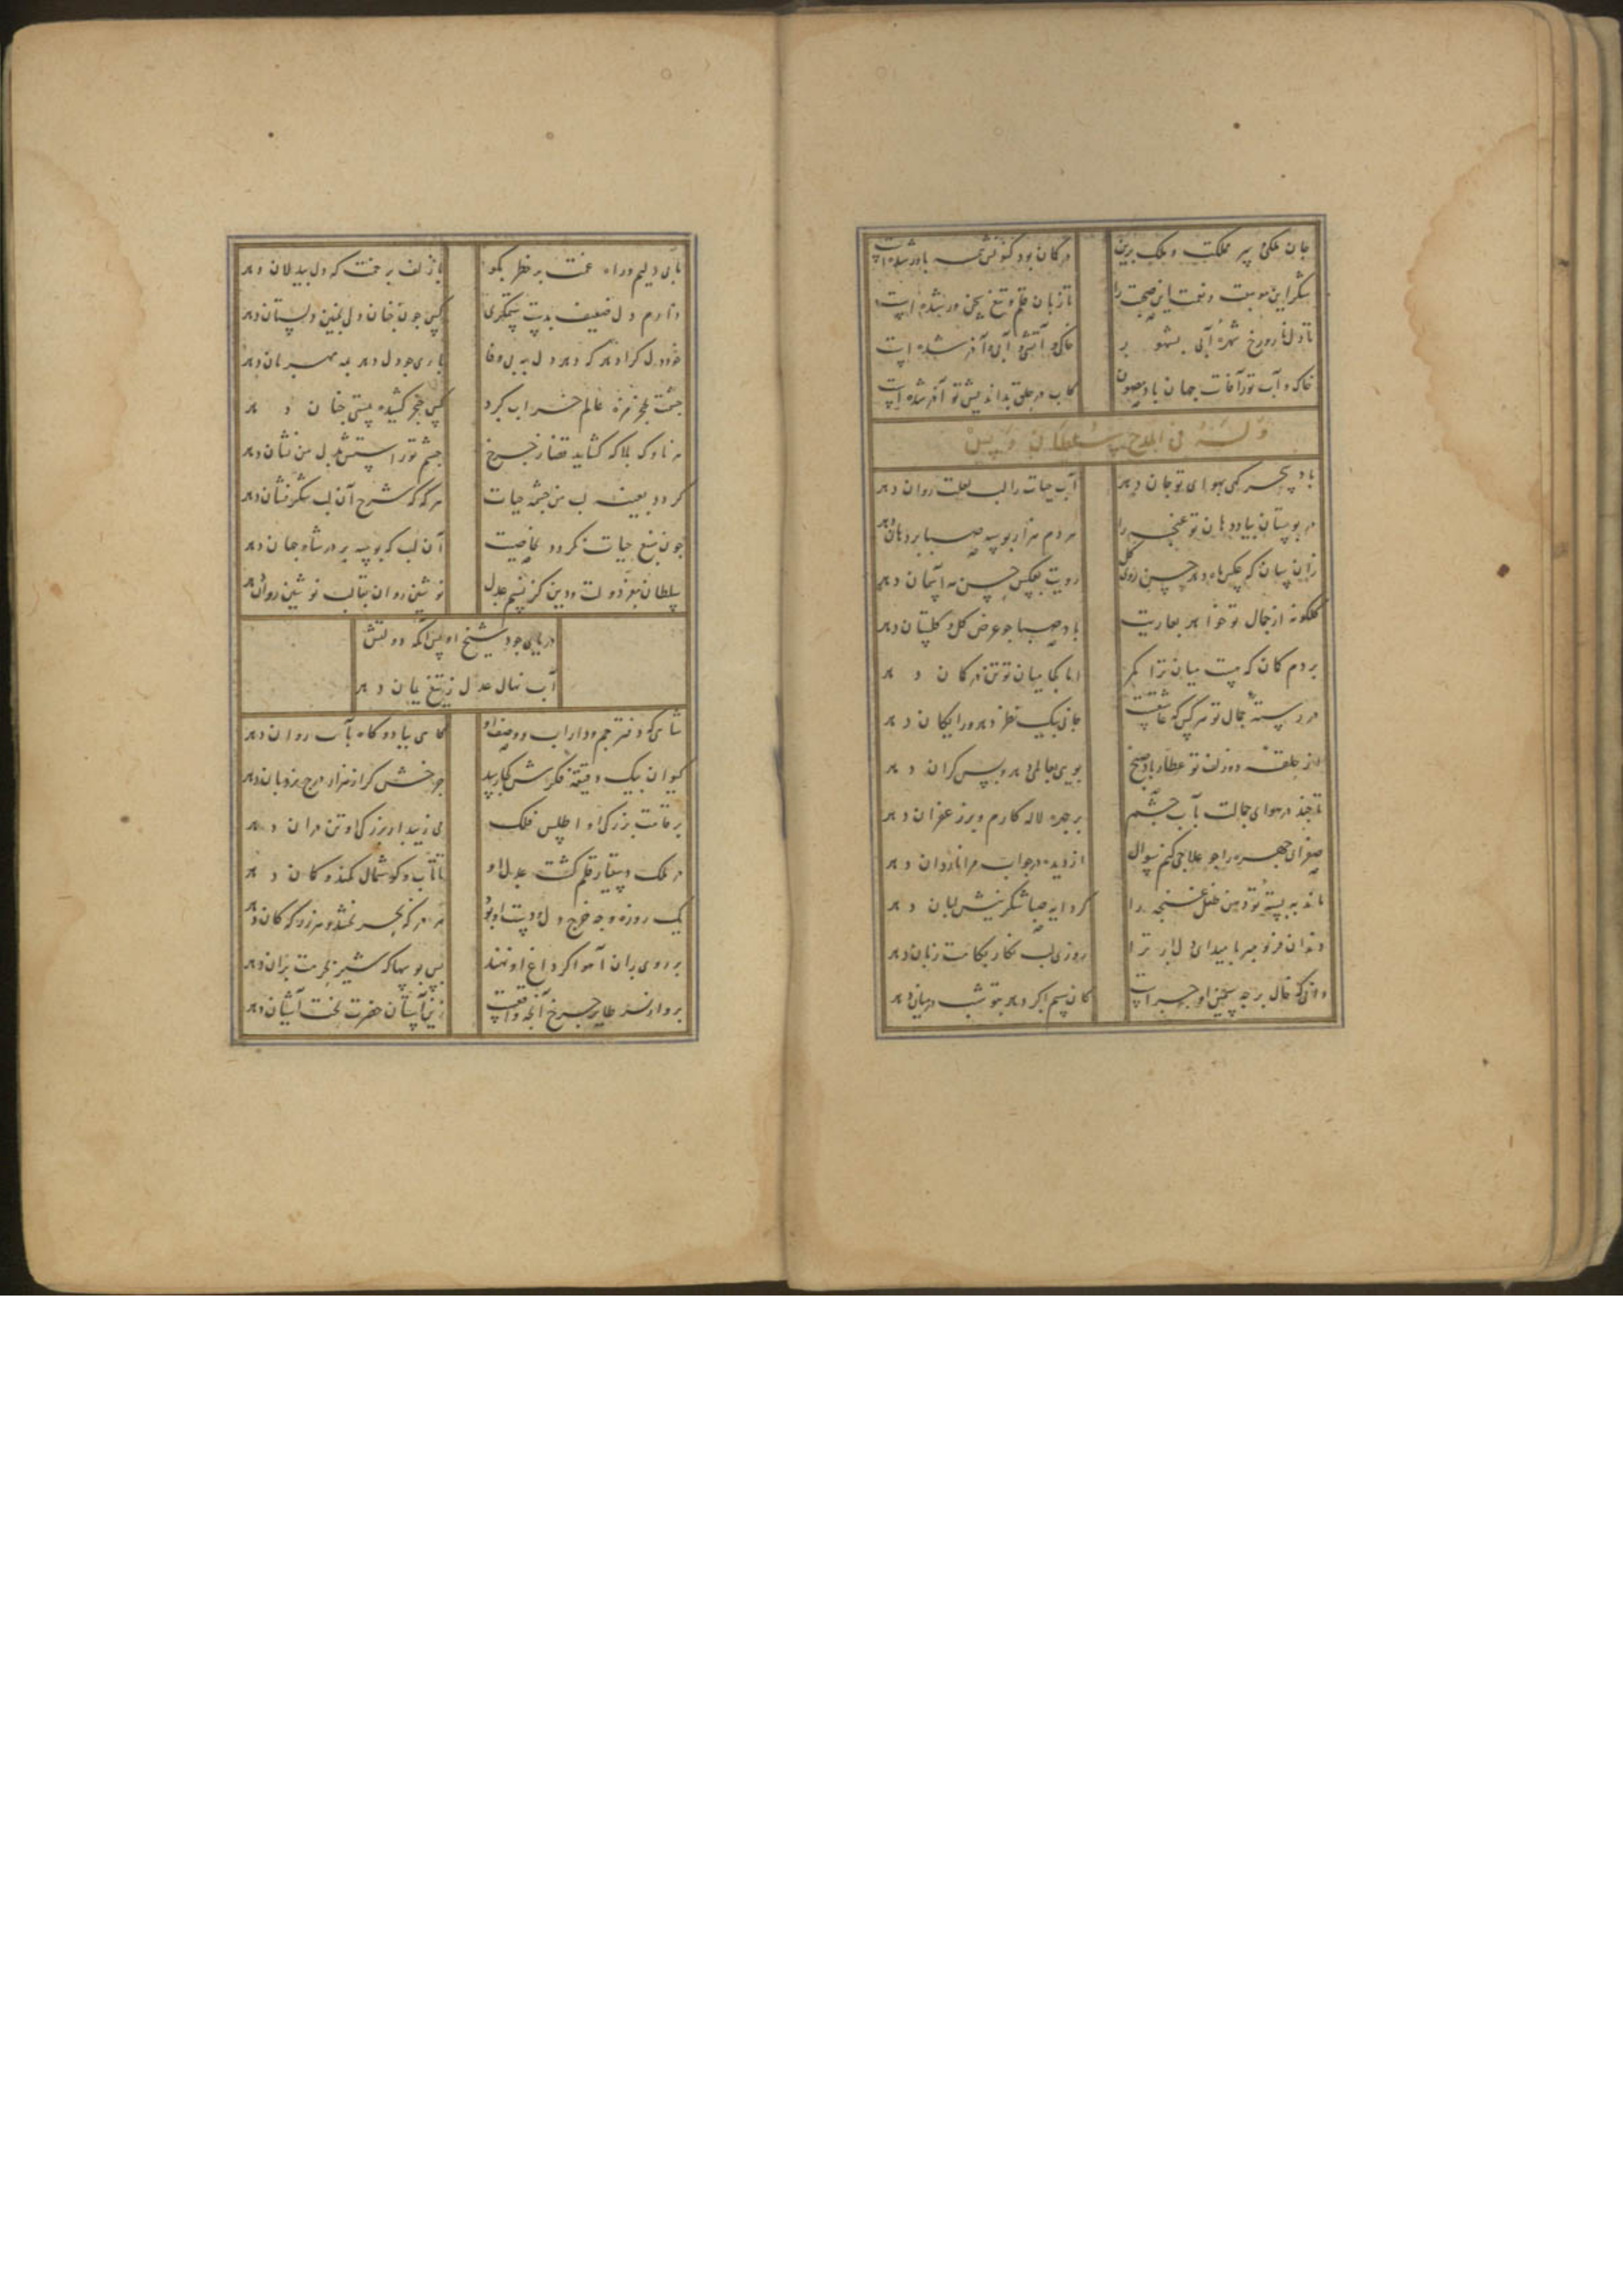 جان ملکی پیر مملکت و ملک برین در کان بود کنونش همه باور شده است
شکر این موهبت و نعمت این صحت را تا زبان قلم و تیغ سخن ور شده است
تا دل نار و رخ شهره آبی بشهور خاکی و آتشی و آبی و آذر شده است
خاک و آب تو ز آفات جهان باد مصون کاب در حلق بداندیش تو آذر شده است
وله فی المدح سلطان اویس
باد سحرگهی بهوای تو جان دهد آب حیات را لب لعلت روان دهد
در بوستان بیاد دهان تو غنچه را هر دم هزار بوسه صبا بر دهان دهد
زان سان که عکس ماه دهد حسن روی گل رویت بعکس حسن مه آسمان دهد
گلگونه از جمال تو خواهد بعاریت باد صبا چو عرض گل و گلستان دهد
بر دم کمان که هست میان ترا کمر اما کجا میان تو تن در کمان دهد
در رسته جمال تو هر کس که عاشقست جانی بیک نظر دهد و رایگان دهد
از حلقه دو زلف تو عطار باد صبح بویی بعالمی دهد و بس گران دهد
تا چند در هوای جمالت بآب چشم بر چهره لاله کارم و بر زعفران دهد
صفرای چهره را چو علاجی کنم سوال از دیده در جواب مرا ناردان دهد
ماند به پسته تو دهن طفل غنچه را گر دایه صبا شکرینش لبان دهد
دندان فرو مبر بامید ای دل ار ترا روزی لب نگار بکامت زبان دهد
دانی که خال بر چه سیمین او چراست کان سیم اگر دهد بتو شب در میان دهد
یا زلف بر خمت که دل بیدلان دهد
دارم دل ضعیف بدست ستمگری کس چون بجان دل بچنین دلستان دهد
خود دل کرا دهد که دهد دل به بی وفا باری چو دل دهد به مهربان دهد
چشمت بخنجر مژه عالم خراب کرد کس خنجر کشیده بمستی چنان دهد
هر ناوک بلا که گشاید قضا ز چرخ چشم تو راستش بدل من نشان دهد
گردد بعینه لب من چشمه حیات هرگه که شرح آن لب شکر فشان دهد
چون منبع حیات نگردد بخاصیت آن لب که بوسه بر در شاه جهان دهد
سلطان معز دولت و دین کز نسیم عدل نوشین روان بقالب نوشین روان دهد
دریای جود شیخ اویس آنکه دولتش
آب نهال عدل ز تیغ یمان دهد
شاهی که دفتر جم و داراب وصف او گاهی بباد و گاه بآب روان دهد
کیوان بیک دقیقه فکرش کجا رسد چرخش گر از هزار درج نردبان دهد
بر قامت بزرگی او اطلس فلک می زیبد ار بزرگی او تن در آن دهد
در ملک دستیار قلم گشت عدل او تا تاب و گوشمال کمند و کمان دهد
یک روزه وجه خرج دل و دست او بود هر در که بحر بخشد و هر زر که کان دهد
بر روی ران آهو اگر داغ او نهند بس بوسها که شیر بحرمت بر آن دهد
پرواز نسر طایر چرخ آنچه واقعست زین آستان حضرت بخت آشیان دهد